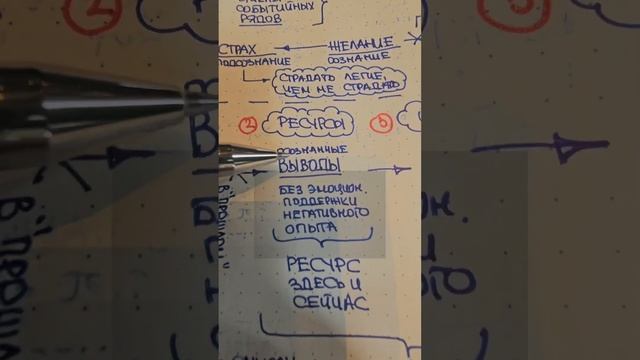 СОБЫТИЙНЫХ
РЯДОВ
СТРАХ ЖЕЛАНИЕ
ПОДСОЗНАНИЕ ОСОЗНАНИЕ
СТРАДАТЬ ЛЕГЧЕ,
ЧЕМ НЕ СТРАДАТЬ
2 РЕСУРСЫ 3
ОСОЗНАННЫЕ
ВЫВОДЫ
БЕЗ ЭМОЦИОН.
ПОДДЕРЖКИ
НЕГАТИВНОГО
ОПЫТА
РЕСУРС
ЗДЕСЬ И
СЕЙЧАС